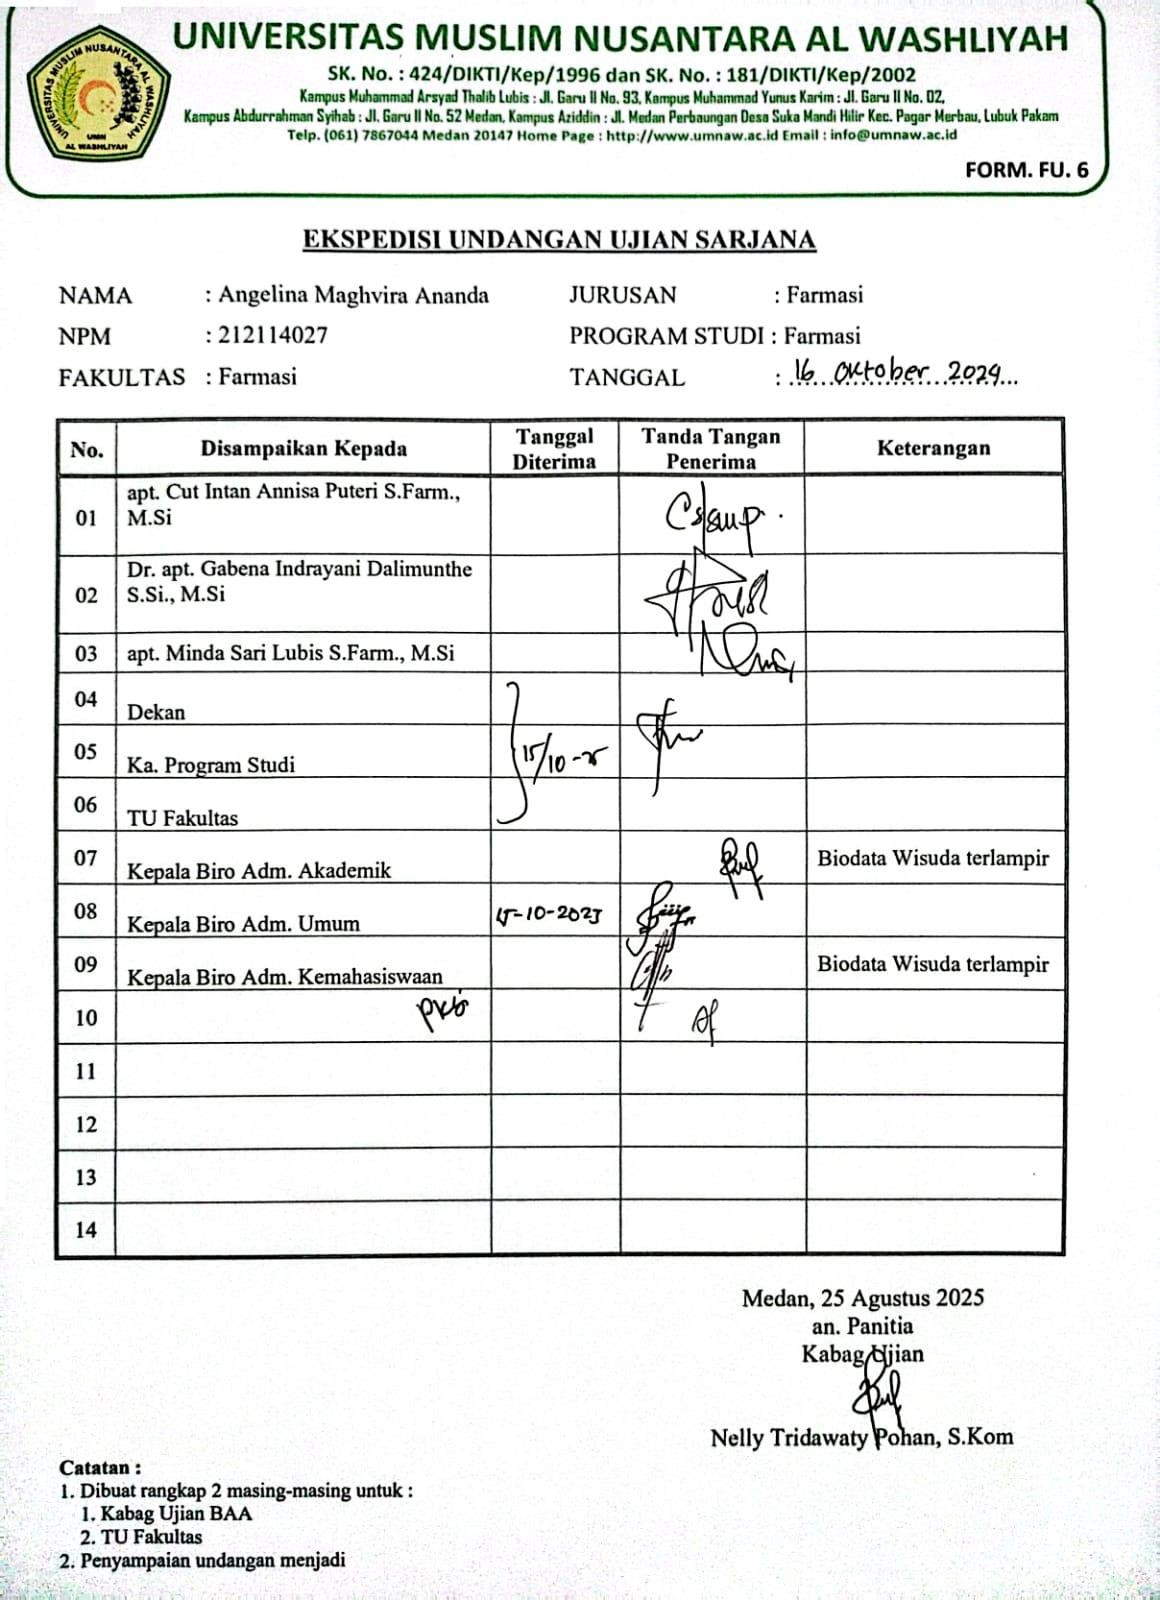 UNIVERSITAS MUSLIM NUSANTARA AL WASHLIYAH
SK. No. : 424/DIKTI/Kep/1996 dan SK. No. : 181/DIKTI/Kep/2002
Kampus Muhammad Arsyad Thalib Lubis : Jl. Garu II No. 93, Kampus Muhammad Yunus Karim : Jl. Garu II No. 02,
Kampus Abdurrahman Syihab : Jl. Garu II No. 52 Medan, Kampus Aziddin : Jl. Medan Perbaungan Desa Suka Mandi Hilir Kec. Pagar Merbau, Lubuk Pakam
Telp. (061) 7867044 Medan 20147 Home Page : http://www.umnaw.ac.id Email : info@umnaw.ac.id
UNIVERSITAS MUSLIM NUSANTARA AL WASHLIYAH
UMN
AL WASHLIYAH
FORM. FU. 6
EKSPEDISI UNDANGAN UJIAN SARJANA
NAMA : Angelina Maghvira Ananda JURUSAN : Farmasi
NPM : 212114027 PROGRAM STUDI : Farmasi
FAKULTAS : Farmasi TANGGAL : 16 Oktober 2024
No. Disampaikan Kepada Tanggal Diterima Tanda Tangan Penerima Keterangan
01 apt. Cut Intan Annisa Puteri S.Farm., M.Si
02 Dr. apt. Gabena Indrayani Dalimunthe S.Si., M.Si
03 apt. Minda Sari Lubis S.Farm., M.Si
04 Dekan
05 Ka. Program Studi 15/10-25
06 TU Fakultas
07 Kepala Biro Adm. Akademik Biodata Wisuda terlampir
08 Kepala Biro Adm. Umum 15-10-2025
09 Kepala Biro Adm. Kemahasiswaan Biodata Wisuda terlampir
10
11
12
13
14
Medan, 25 Agustus 2025
an. Panitia
Kabag Ujian
Nelly Tridawaty Pohan, S.Kom
Catatan :
1. Dibuat rangkap 2 masing-masing untuk :
1. Kabag Ujian BAA
2. TU Fakultas
2. Penyampaian undangan menjadi